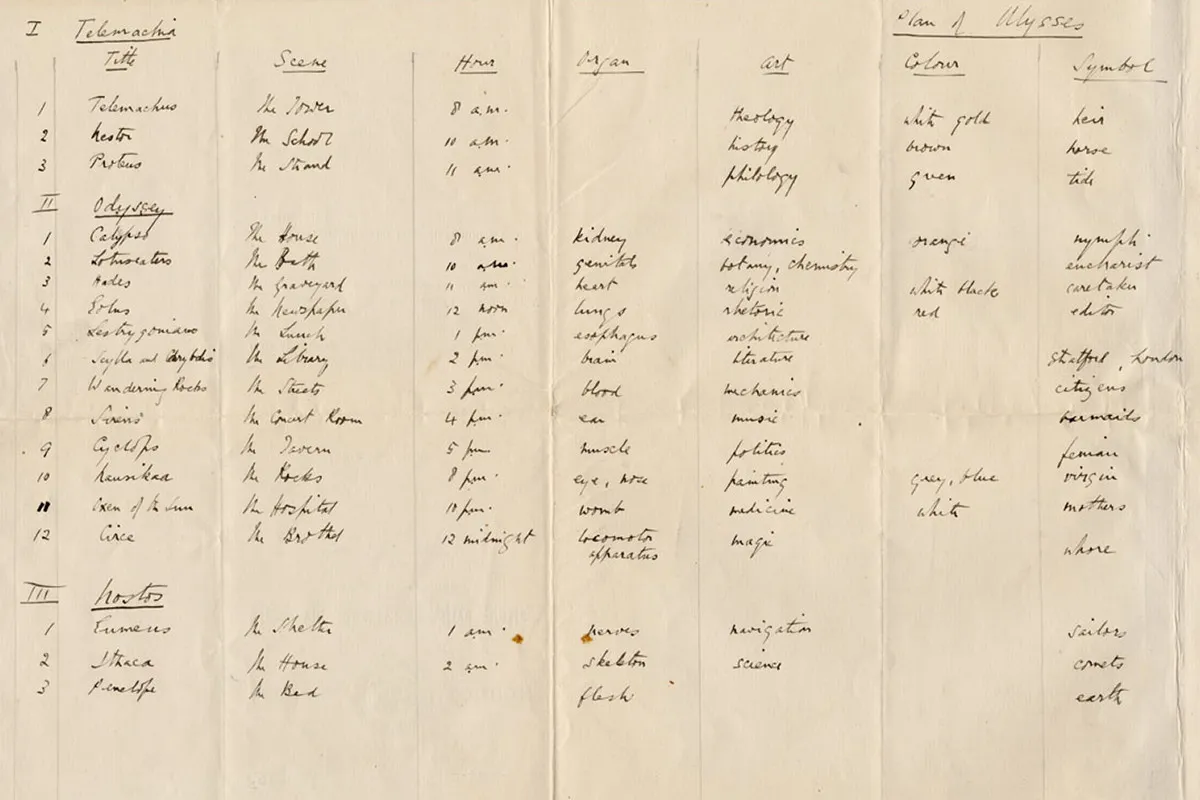 Plan of Ulysses
I Telemachia
Title Scene Hour Organ Art Colour Symbol
1 Telemachus The Tower 8 a.m. theology white gold heir
2 Nestor The School 10 a.m. history brown horse
3 Proteus The Strand 11 a.m. philology green tide
II Odyssey
1 Calypso The House 8 a.m. kidney economics orange nymph
2 Lotuseaters The Bath 10 a.m. genitals botany, chemistry eucharist
3 Hades The Graveyard 11 a.m. heart religion white black caretaker
4 Eolus The Newspaper 12 noon lungs rhetoric red editor
5 Lestrygonians The Lunch 1 p.m. esophagus architecture
6 Scylla and Charybdis The Library 2 p.m. brain literature Stratford, London
7 Wandering Rocks The Streets 3 p.m. blood mechanics citizens
8 Sirens The Concert Room 4 p.m. ear music barmaids
9 Cyclops The Tavern 5 p.m. muscle politics fenian
10 Nausikaa The Rocks 8 p.m. eye, nose painting grey, blue virgin
11 Oxen of the Sun The Hospital 10 p.m. womb medicine white mothers
12 Circe The Brothel 12 midnight locomotor magic whore
apparatus
III Nostos
1 Eumeus The Shelter 1 a.m. nerves navigation sailors
2 Ithaca The House 2 a.m. skeleton science comets
3 Penelope The Bed flesh earth